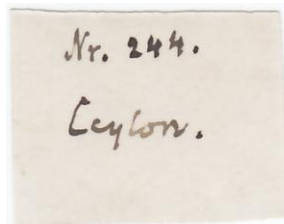 Nr. 244.
Ceylon.